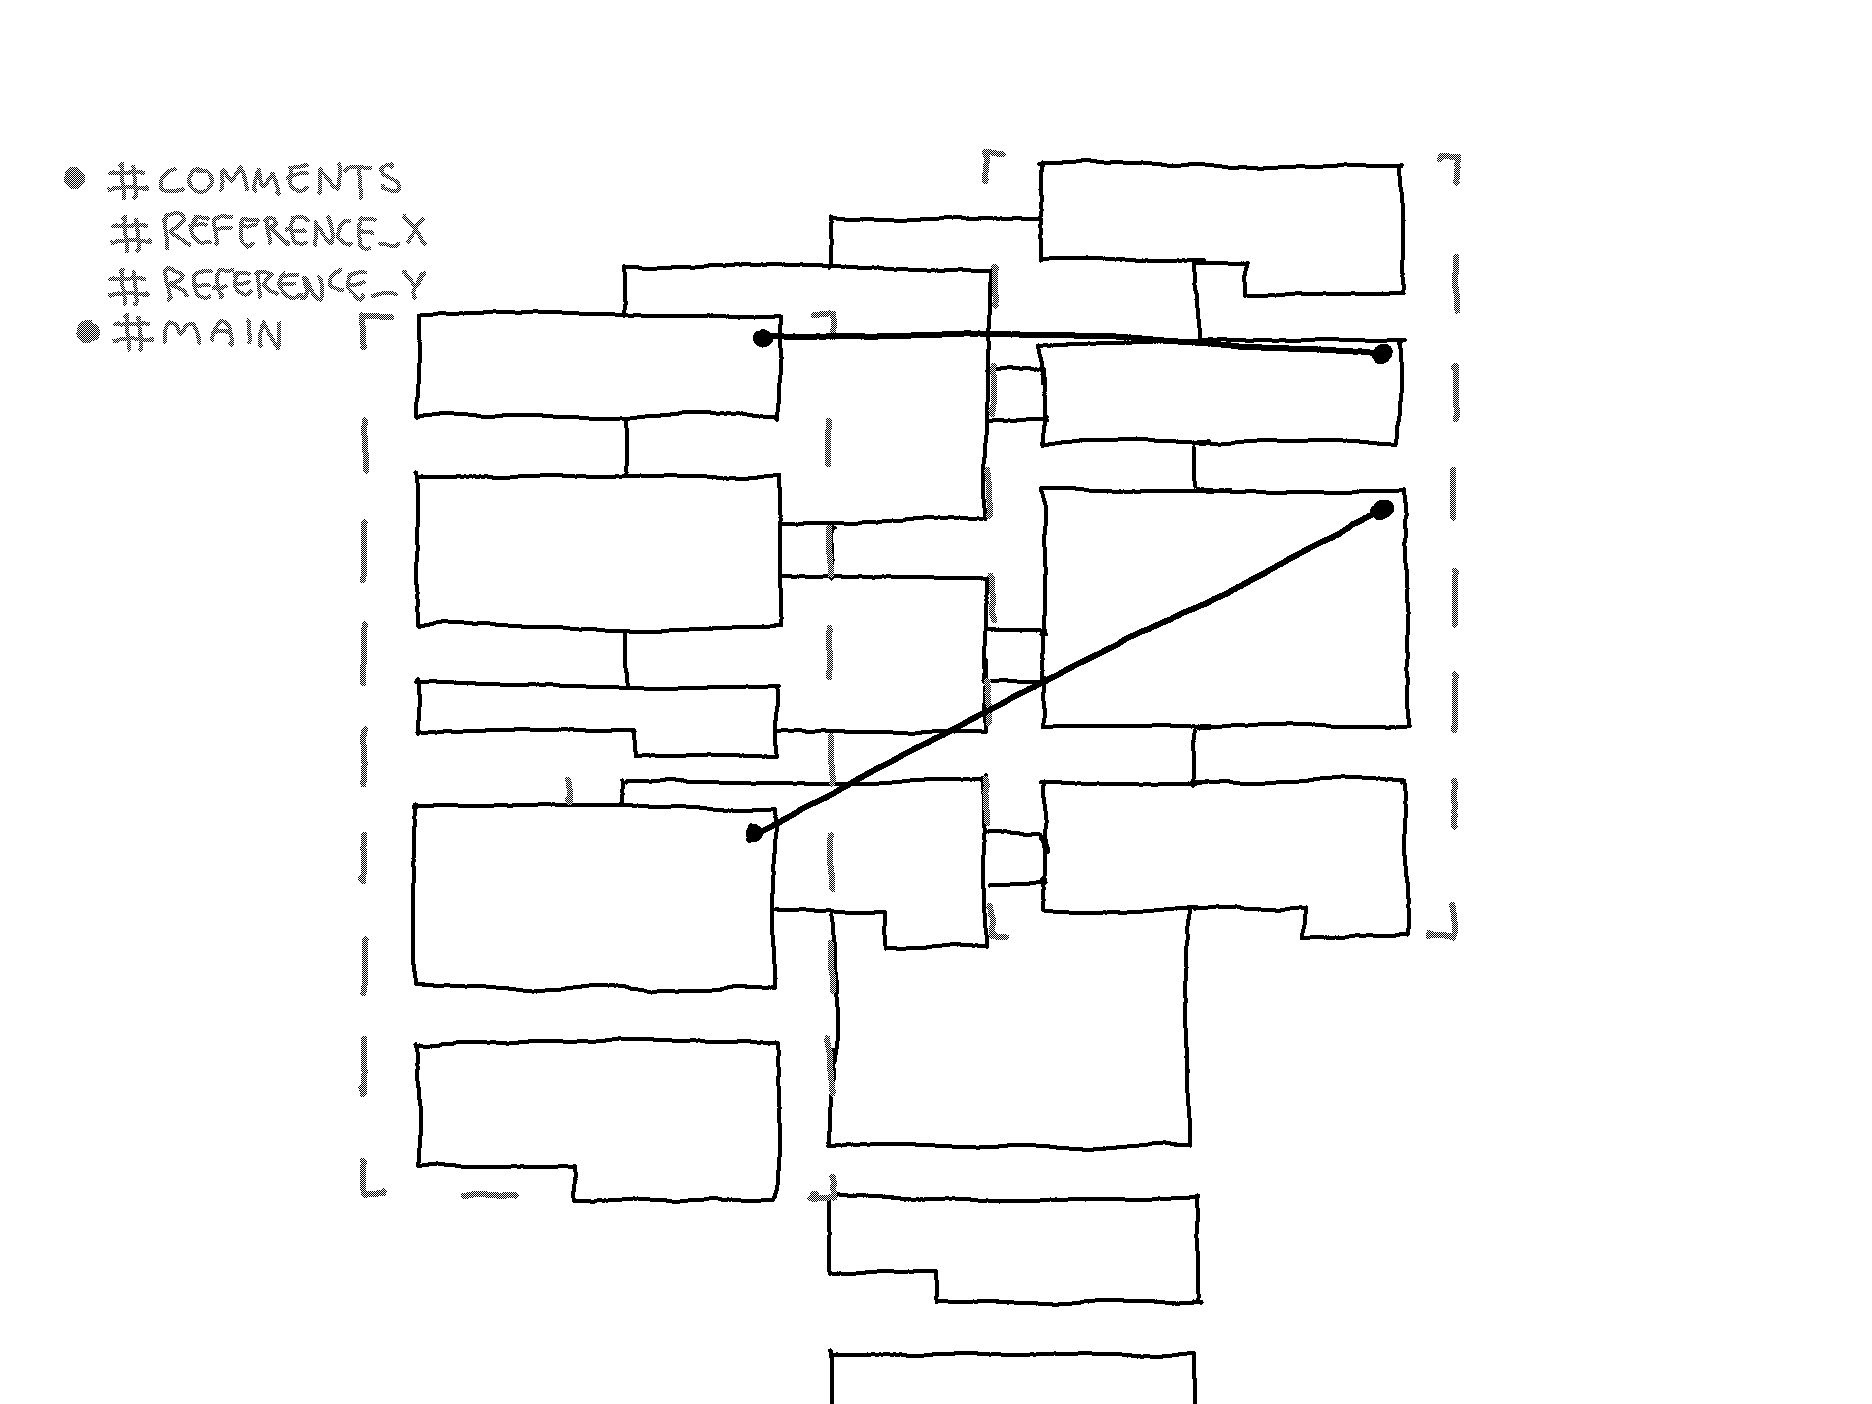 # COMMENTS
# REFERENCE_X
# REFERENCE_Y
# MAIN